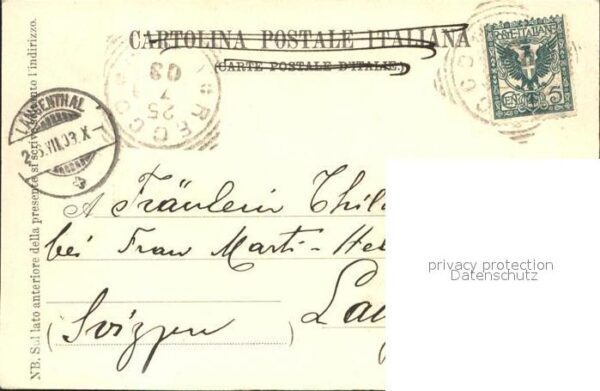 CARTOLINA POSTALE ITALIANA
(CARTE POSTALE D'ITALIE)
RECCO
25
7
03
POSTE ITALIANE
CENT. 5
LANGENTHAL
26.VII.03.X
NB. Sul lato anteriore della presente si scrive soltanto l'indirizzo.
A Fräulein Thil
bei Frau Marti-He
La
(Svizzera)
privacy protection
Datenschutz